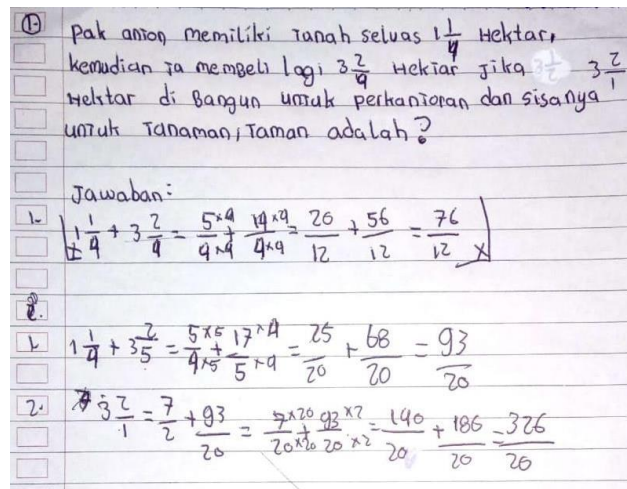 1. Pak anton memiliki Tanah seluas 1 1/4 Hektar,
kemudian ia membeli lagi 3 2/4 Hektar Jika 3 2/1
Hektar di Bangun untuk perkantoran dan sisanya
untuk Tanaman, Taman adalah?
Jawaban:
1. 1 1/4 + 3 2/4 = 5×4/4×4 + 14×4/4×4 = 20/12 + 56/12 = 76/12 X
2.
1. 1 1/4 + 3 2/5 = 5×5/4×5 + 17×4/5×4 = 25/20 + 68/20 = 93/20
2. 3 2/1 = 7/2 + 93/20 = 7×20/20×20 + 93×2/20×2 = 140/20 + 186/20 = 326/20